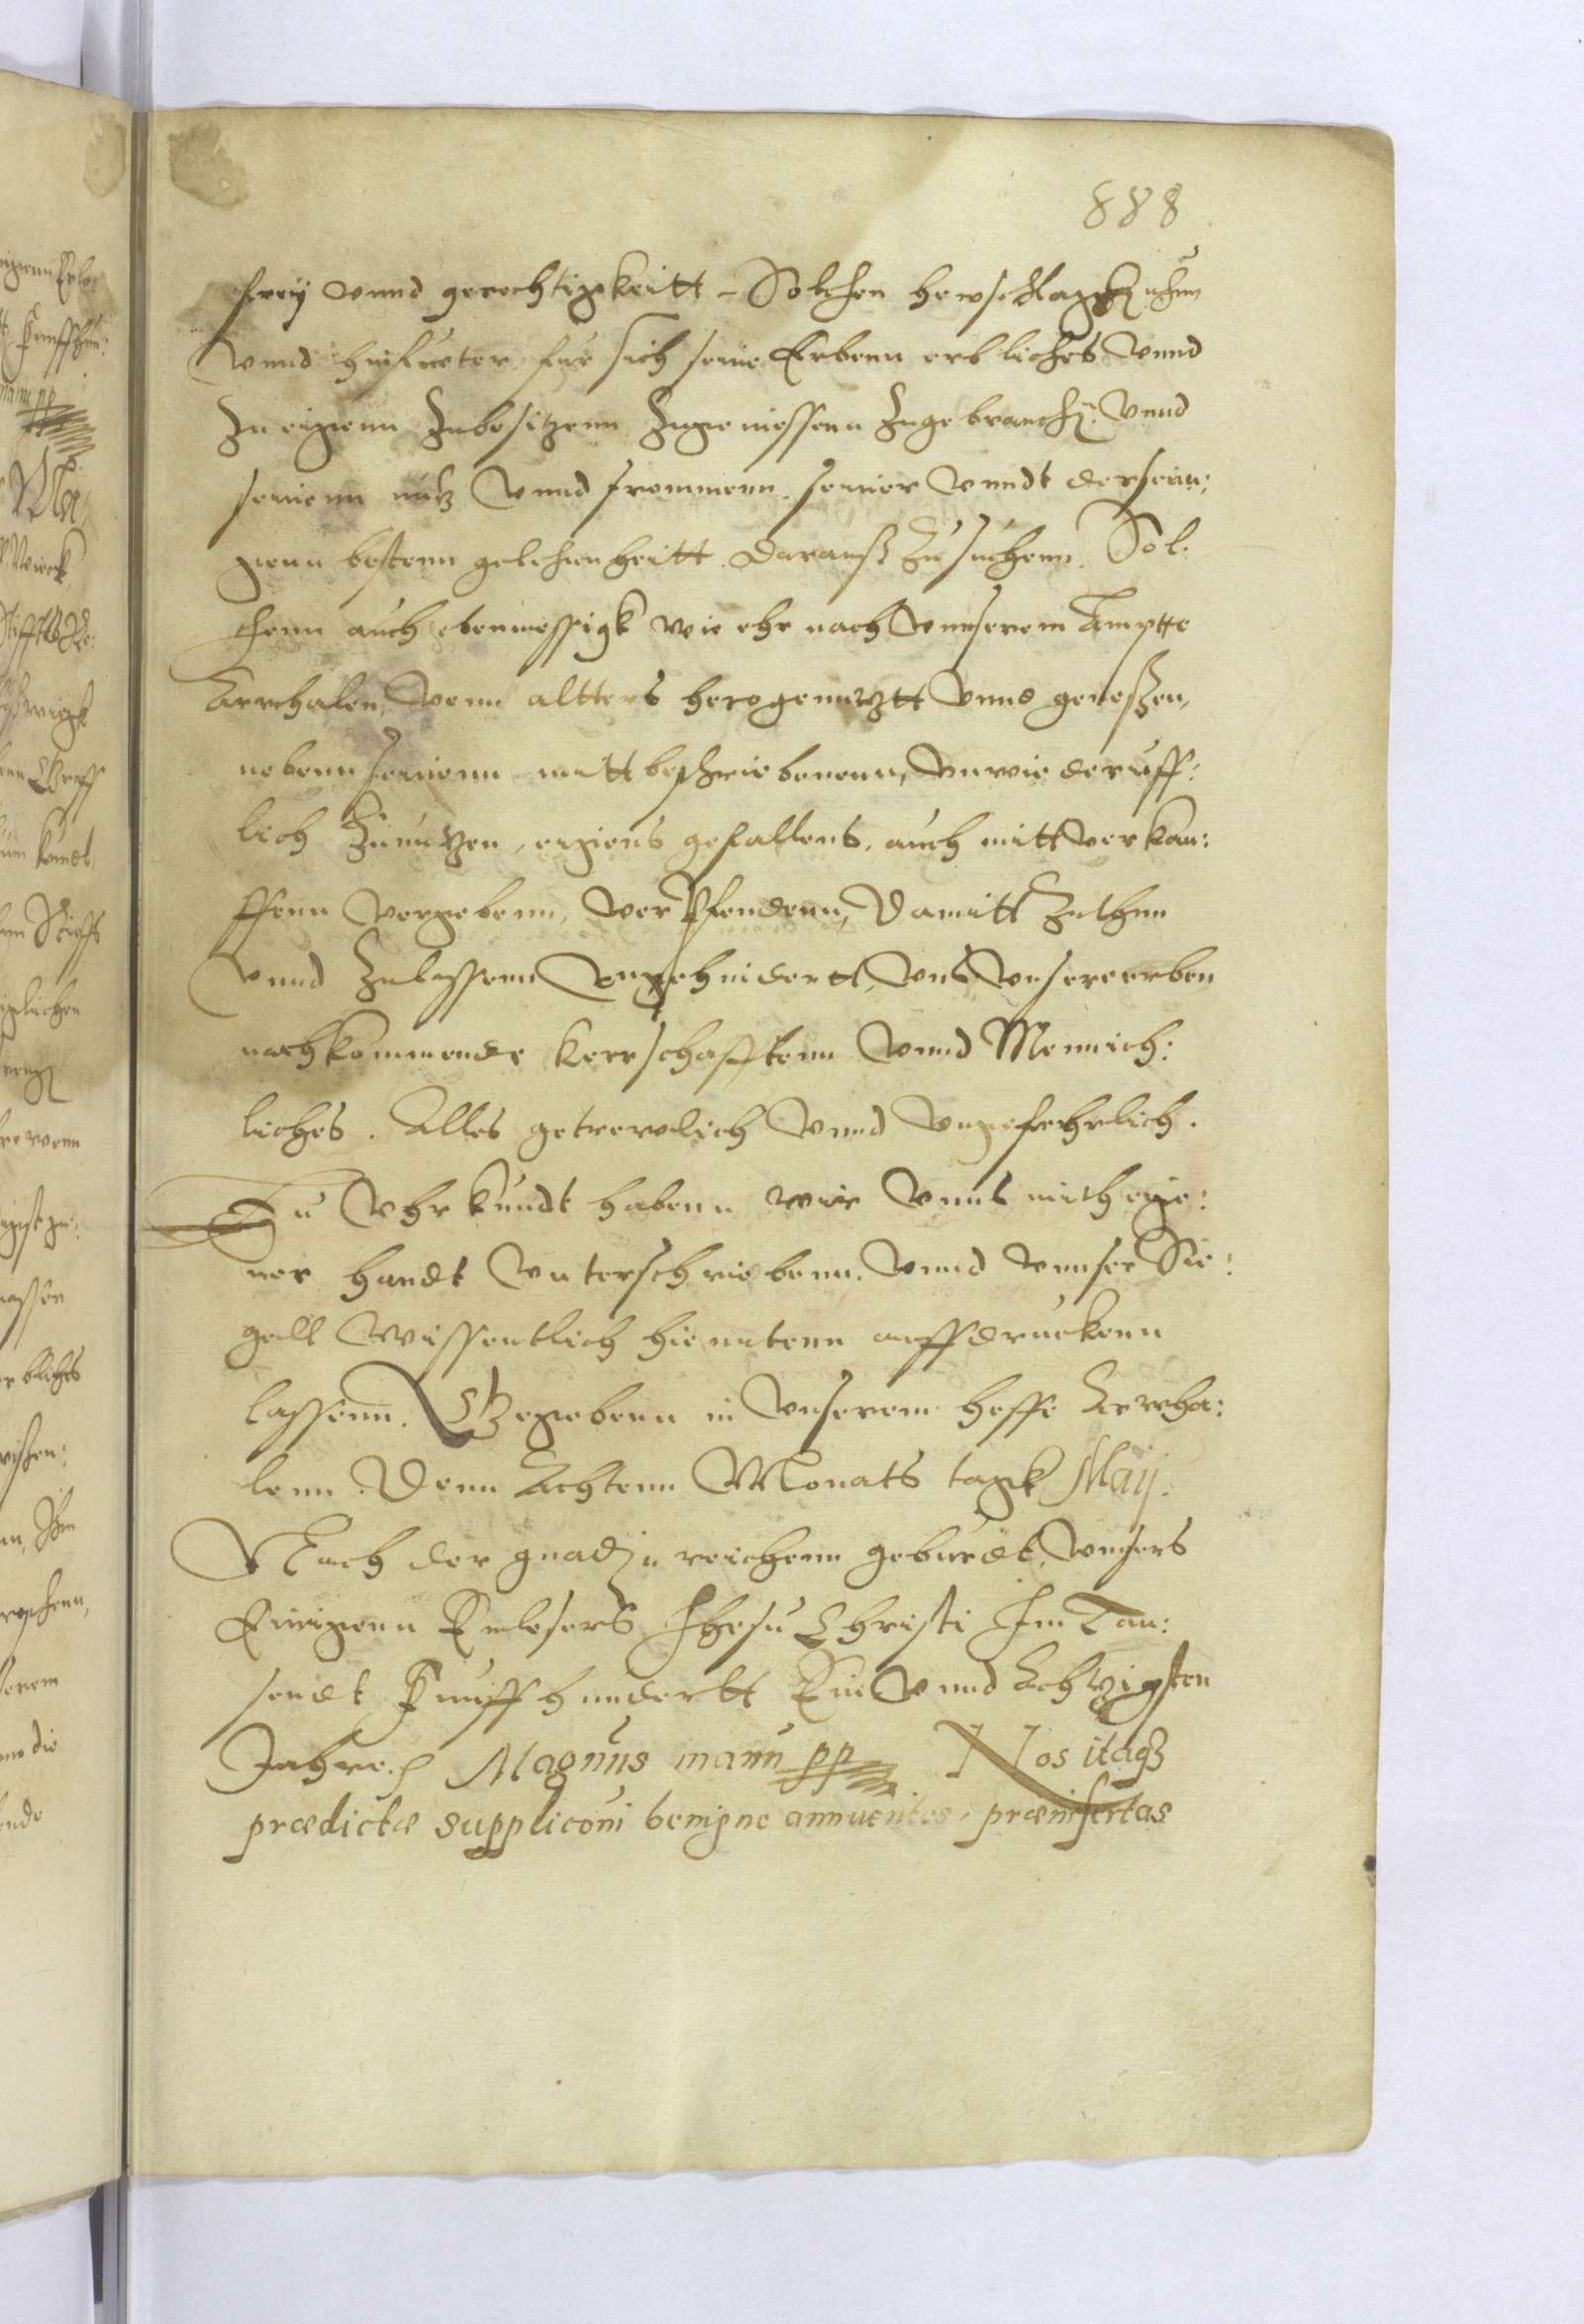 888
frey vnnd gerechtigkeitt – Solchen hewschlagk
vnnd hinfurter fur sich seine Erbenn erbliches vnnd
zu eigenn zubesitzenn zugeniessenn zugebrauch: vnnd
seinenn nutz vnnd frommenn. seiner vnndt derseini:
genn bestenn gelegenheitt darauß zu suchenn. Sol:
chenn auch ebenmessigk wie ehr nach vnnserem Ampte
Karchalen, vonn altters herogenutztt vnnd genoßen,
nebenn seinenn mittbeschriebenenn, vnwiederuff:
lich zunutzen, eigens gefallens, auch mitt verkau:
ffenn vergebenn, verPfendenn, Damitt zuthun
vnnd zulassenn vngehindertt, vns vnsere erben
nachkommende herrschafftenn vnnd Mennich:
liches. Alles getrewlich vnnd vngefehrlich.
Zu Vhrkundt habenn wir vnns mith eige:
ner handt vnterschriebenn, vnnd vnnser Sie:
gell wissentlich hieuntenn auffdruckenn
lassenn. Gegebenn in vnserem hoffe Karcha:
lenn. Denn Achtenn Monats tagk Maij.
Nach der gnadenreichenn geburdt, vnsers
Einigenn Erlesers Jhesu Christi Im Tau:
sendt Funffhundertt Ein vnnd Achtzigsten
Jahre. Magnus manu pp Nos itaq3
prædictæ supplicōni benigne annuentes, præinsertas